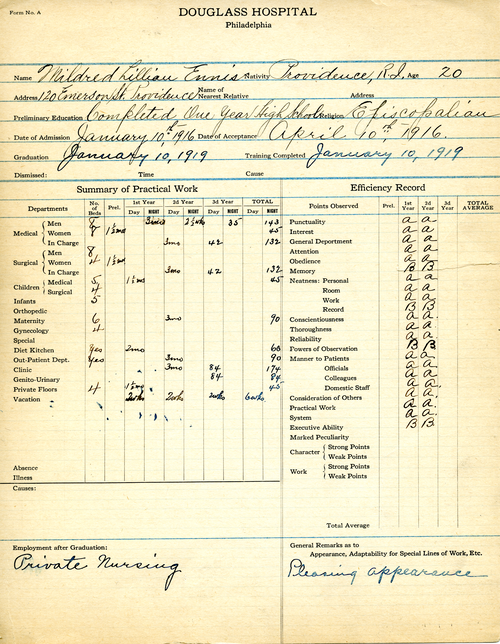 Form No. A
DOUGLASS HOSPITAL
Philadelphia
Name Mildred Lillian Ennis Nativity Providence, R.I. Age 20
Address 120 Emerson St. Providence Name of Nearest Relative Address
Preliminary Education Completed One Year High School Religion Episcopalian
Date of Admission January 10th 1916 Date of Acceptance April 10th, 1916.
Graduation January 10, 1919 Training Completed January 10, 1919
Dismissed: Time Cause
Summary of Practical Work
Departments No. of Beds Prel. 1st Year 2d Year 3d Year TOTAL
Day NIGHT Day NIGHT Day NIGHT Day NIGHT
Medical Men 8 2½ wks 35 143
Women 7 1½ mo 45
In Charge 3mo 42 132
Surgical Men 8
Women 4 1½ mo
In Charge 3mo 42 132
Children Medical 5 1½ mo 45
Surgical 4
Infants 5
Orthopedic
Maternity 6 3mo 90
Gynecology 4
Special
Diet Kitchen yes 2mo 60
Out-Patient Dept. yes 3mo 90
Clinic 3mo 84 174
Genito-Urinary 84 84
Private Floors 4 1½ mo 45
Vacation 2wks 2wks 2wks 6wks
Absence
Illness
Causes:
Employment after Graduation:
Private Nursing
Efficiency Record
Points Observed Prel. 1st Year 2d Year 3d Year TOTAL AVERAGE
Punctuality a a
Interest a a
General Department a a
Attention a a
Obedience a a
Memory B B
Neatness: Personal a a
Room a a
Work a a
Record B B
Conscientiousness a a
Thoroughness a a
Reliability a a
Powers of Observation B B
Manner to Patients a a
Officials a a
Colleagues a a
Domestic Staff a a
Consideration of Others a a
Practical Work a a
System a a
Executive Ability B B
Marked Peculiarity
Character Strong Points
Weak Points
Work Strong Points
Weak Points
Total Average
General Remarks as to
Appearance, Adaptability for Special Lines of Work, Etc.
Pleasing appearance